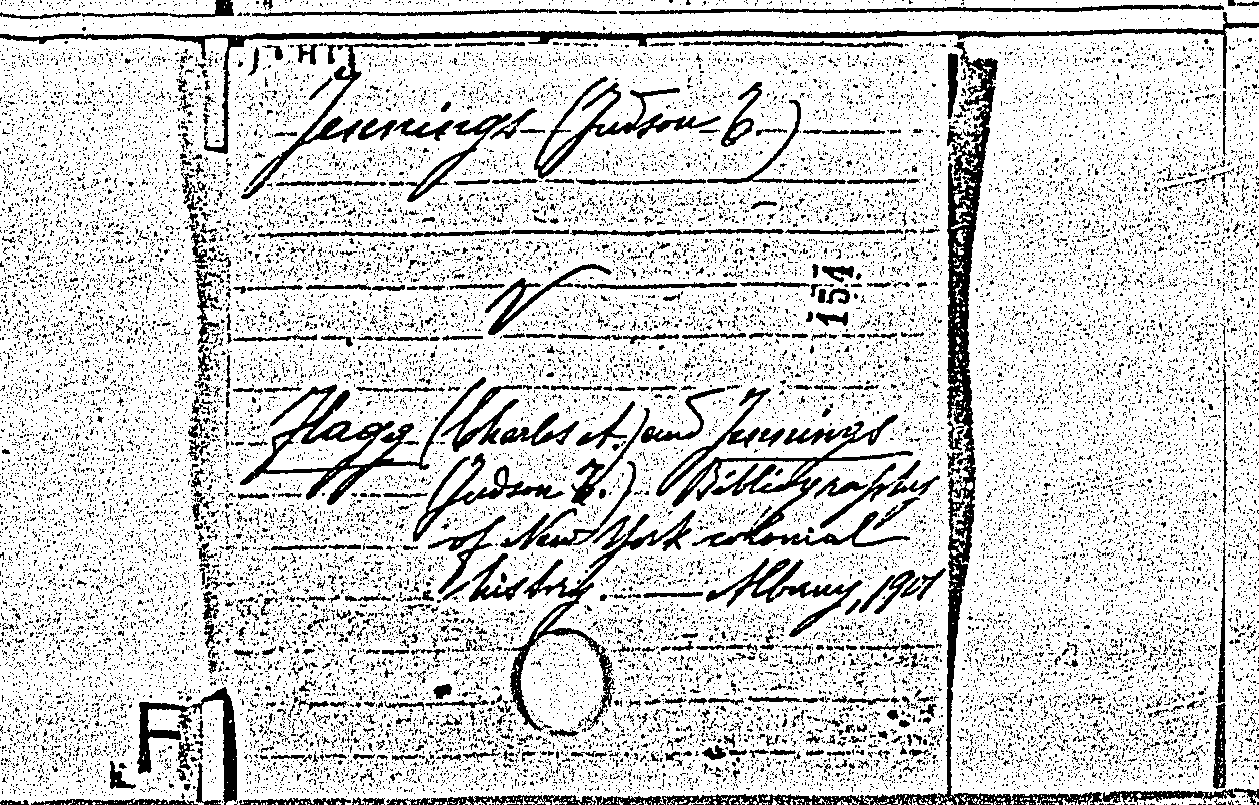 Jennings (Judson T.)
154
Flagg (Charles A.) and Jennings
(Judson T.). Bibliography
of New York colonial
history. — Albany, 1901
F
F.